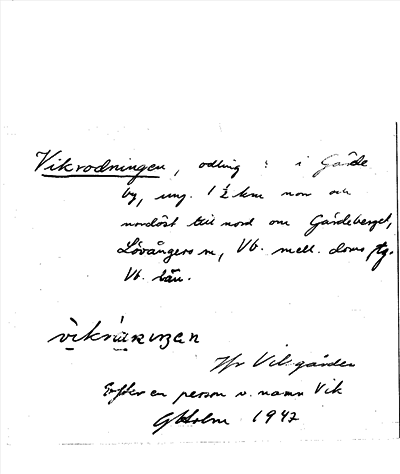 Vikrodningen, odling i Gärde
by, ung. 1½ km norr och
nordöst till nord om Gärdeberget,
Lövångers sn, Vb. mell. doms
Vb. län.
Jfr Vikgården
Efter en person v. namn Vik
GHolm 1947